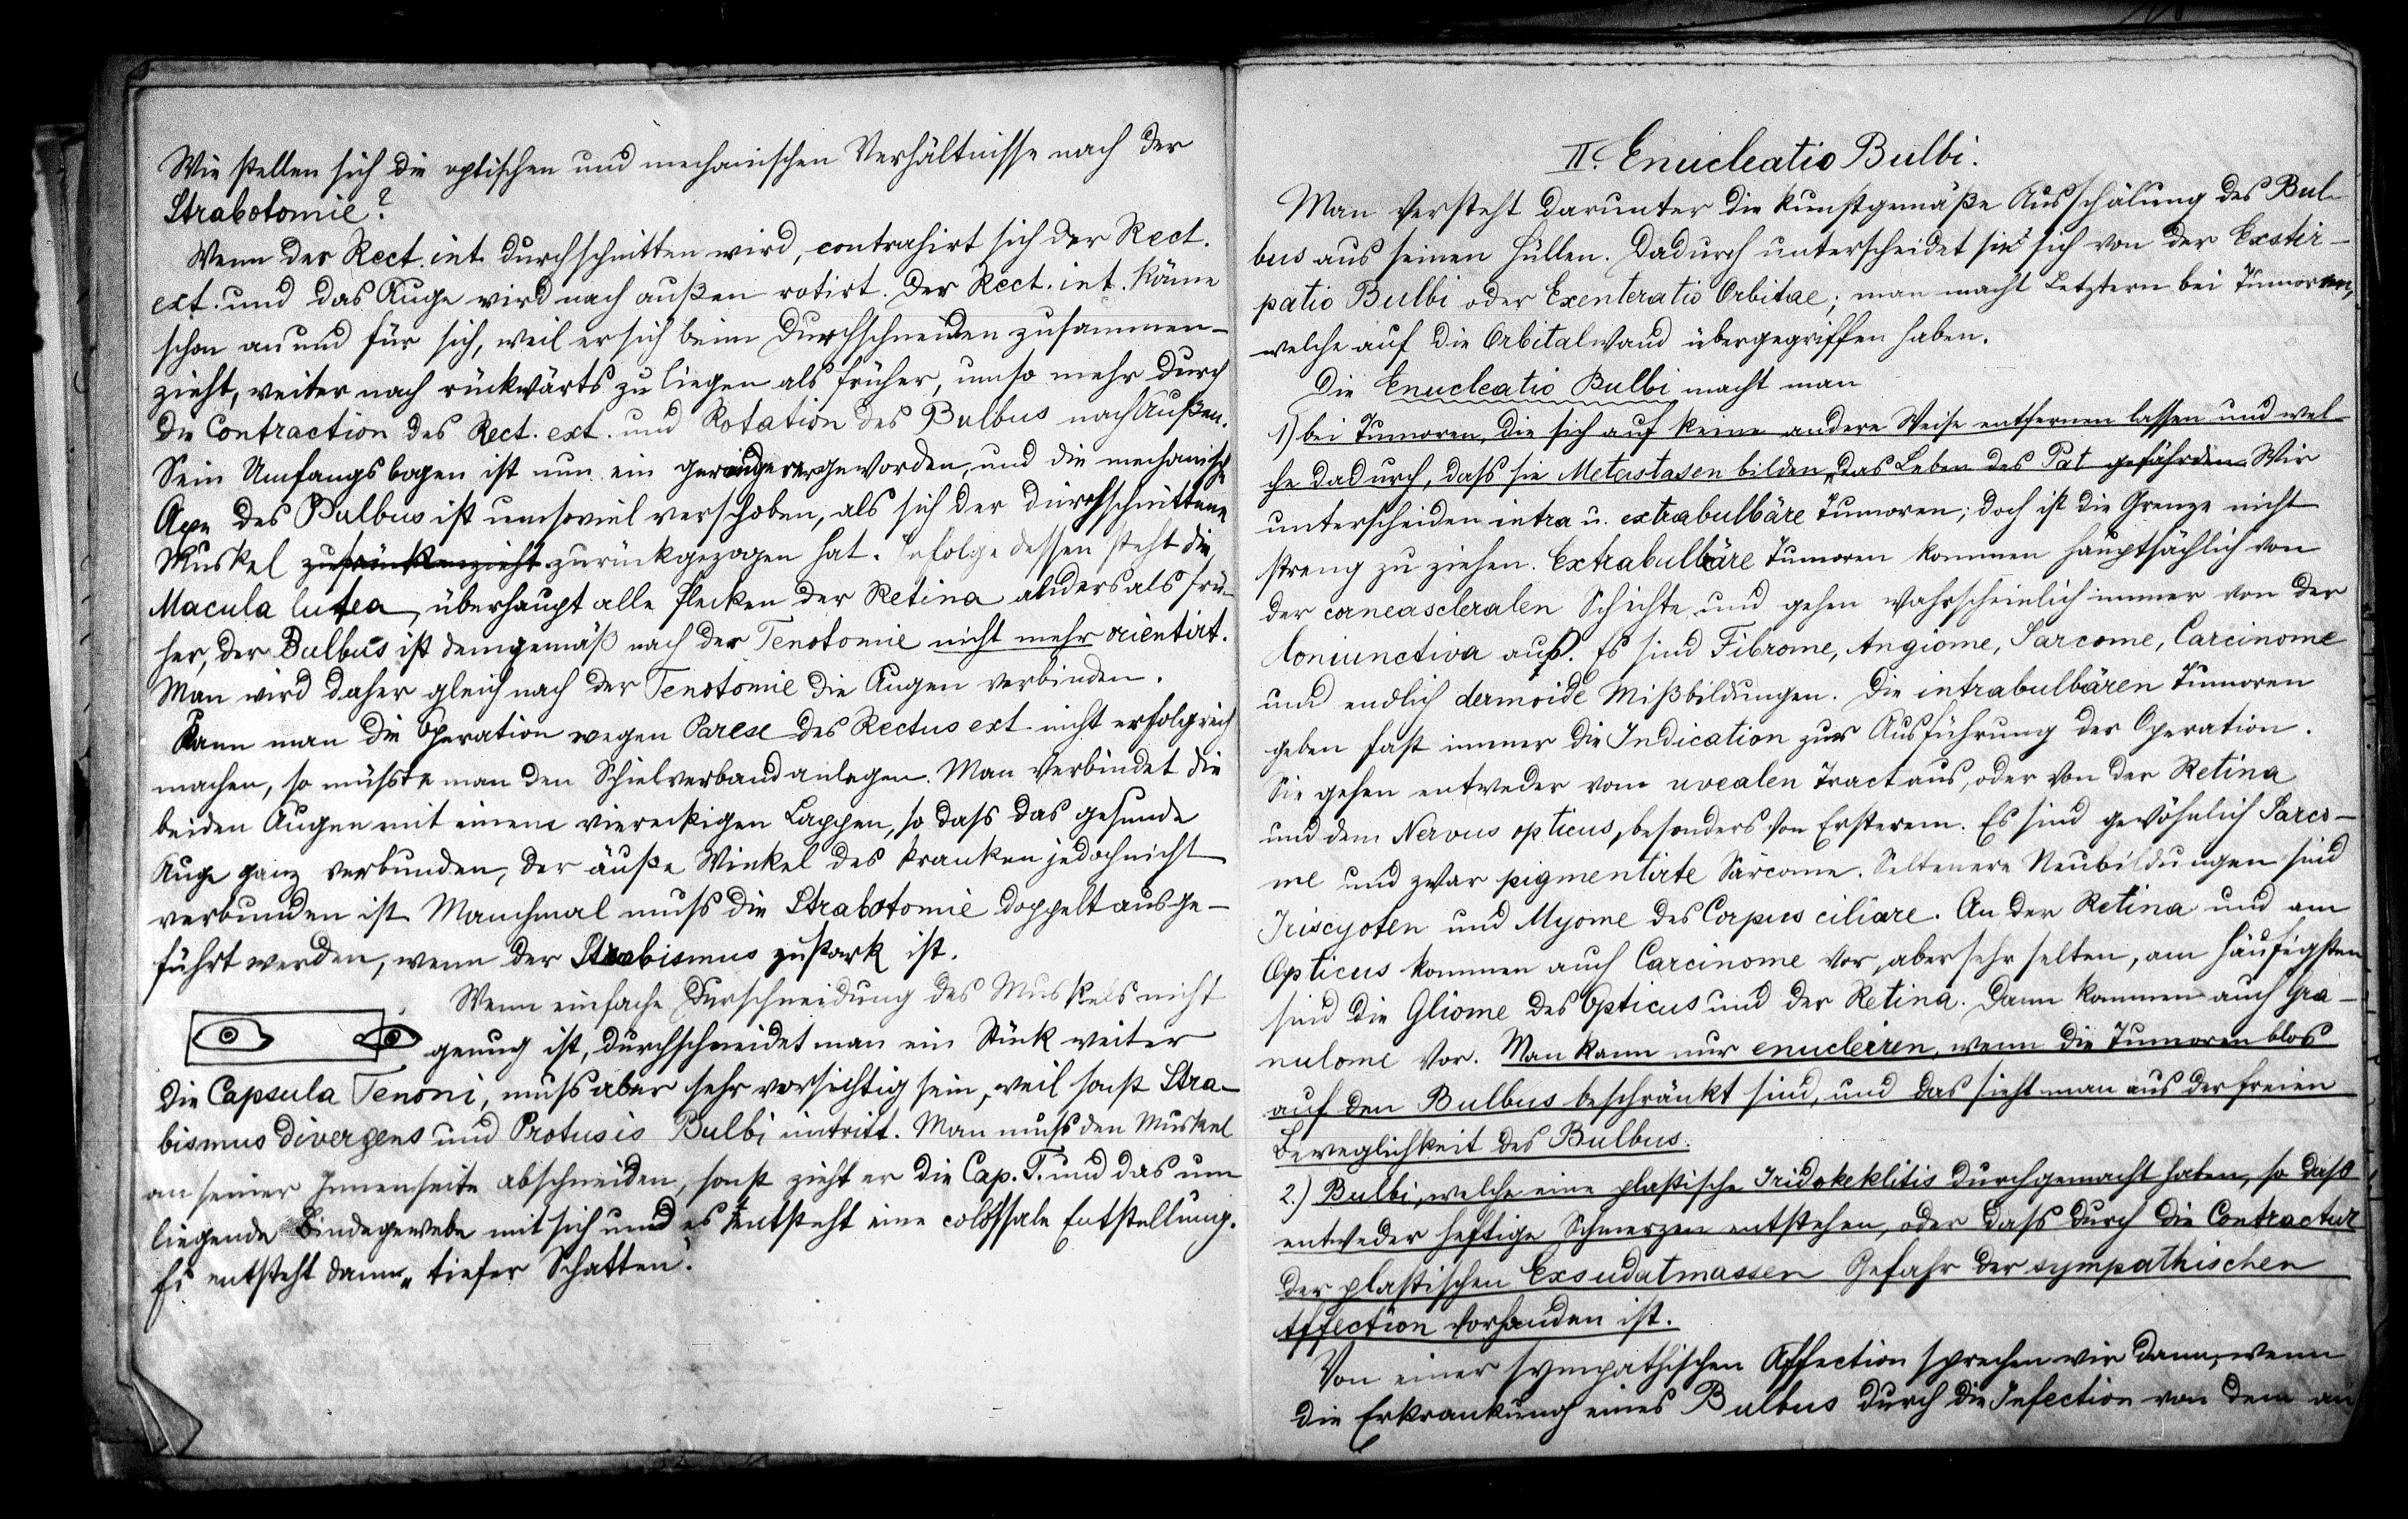 Wie stellen sich die optischen und mechanischen Verhältnisse nach der
Strabotomie?
Wenn der Rect. int. durchschnitten wird, contrahirt sich der Rect.
ext. und das Auge wird nach außen rotirt. Der Rect. int. käme
schon an und für sich, weil er sich beim Durchschneiden zusammen-
zieht, weiter nach rückwärts zu liegen als früher, umso mehr durch
die Contraction des Rect. ext. und Rotation des Bulbus nach Außen.
Sein Umfangsbogen ist nun ein geringerer geworden, und die mechanische
Axe des Bulbus ist umsoviel verschoben, als sich der durchschnittene
Muskel zurückgezogen hat. Infolge dessen steht die
Macula lutea, überhaupt alle Flecken der Retina anders als frü-
her, der Bulbus ist demgemäß nach der Tenotomie nicht mehr orientirt.
Man wird daher gleich nach der Tenotomie die Augen verbinden.
Kann man die Operation wegen Parese des Rectus ext. nicht erfolgreich
machen, so müsste man den Schielverband anlegen. Man verbindet die
beiden Augen mit einem viereckigen Lappen, so dass das gesunde
Auge ganz verbunden, der äuße Winkel des kranken jedoch nicht
verbunden ist. Manchmal muss die Strabotomie doppelt ausge-
führt werden, wenn der Strabismus zu stark ist.
Wenn einfache Durschneidung des Muskels nicht
genug ist, durchschneidet man ein Stück weiter
die Capsula Tenoni, muss aber sehr vorsichtig sein, weil sonst Stra-
bismus divergens und Protusis Bulbi eintritt. Man muss den Muskel
an seiner Innenseite abschneiden, sonst zieht er die Cap. T. und das um
liegende Bindegewebe mit sich und es entsteht eine colossale Entstellung.
Es entsteht dann „tiefer Schatten".
II. Enucleatio Bulbi.
Man versteht darunter die kunstgemäße Ausschälung des Bul-
bus aus seinen Hüllen. Dadurch unterscheidet sie sich von der Exstir-
patio Bulbi oder Exenteratio Orbitae; man macht Letztern bei Tumoren,
welche auf die Orbitalwand übergegriffen haben.
Die Enucleatio Bulbi macht man
1) bei Tumoren, die sich auf keine andere Weise entfernen lassen und wel-
che dadurch, dass sie Metastasen bilden, das Leben des Pat gefährden. Wir
unterscheiden intra u. extrabulbäre Tumoren; doch ist die Grenze nicht
streng zu ziehen. Extrabulbäre Tumoren kommen hauptsächlich von
der corneascleralen Schichte und gehen wahrscheinlich immer von der
Coniunctiva aus. Es sind Fibrome, Angiome, Sarcome, Carcinome
und endlich dermoide Mißbildungen. Die intrabulbären Tumoren
geben fast immer die Indication zur Ausführung der Operation.
Sie gehen entweder vom uvealen Tract aus, oder von der Retina
und dem Nervus opticus, besonders von Ersterem. Es sind gewöhnlich Sarco-
me und zwar pigmentirte Sarcome. Seltenere Neubildungen sind
Iriscysten und Myome des Corpus ciliare. An der Retina und am
Opticus kommen auch Carcinome vor, aber sehr selten, am häufigsten
sind die Gliome des Opticus und der Retina. Dann kommen auch Gra-
nulome vor. Man kann nur enucleiren, wenn die Tumoren blos
auf den Bulbus beschränkt sind, und das sieht man aus der freien
Beweglichkeit des Bulbus.
2.) Bulbi, welche eine plastische Iridokeklitis durchgemacht haben, so dass
entweder heftige Schmerzen entstehen, oder dass durch die Contractur
der plastischen Exsudatmassen Gefahr der sympathischen
Affection vorhanden ist.
Von einer sympathischen Affection sprechen wir dann, wenn
die Erkrankung eines Bulbus durch die Infection von dem an